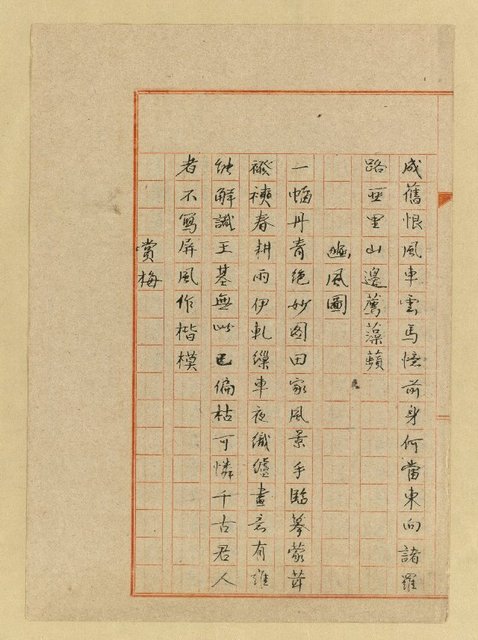 成舊恨風車雲馬憶前身何當東向諸羅
路亞里山邊薦藻蘋
豳風圖
一幅丹青絕妙圖田家風景手臨摹蒙茸
襏襫春耕雨伊軋繅車夜織繻畫意有誰
能解識王基無此已偏枯可憐千古君人
者不寫屏風作楷模
賞梅